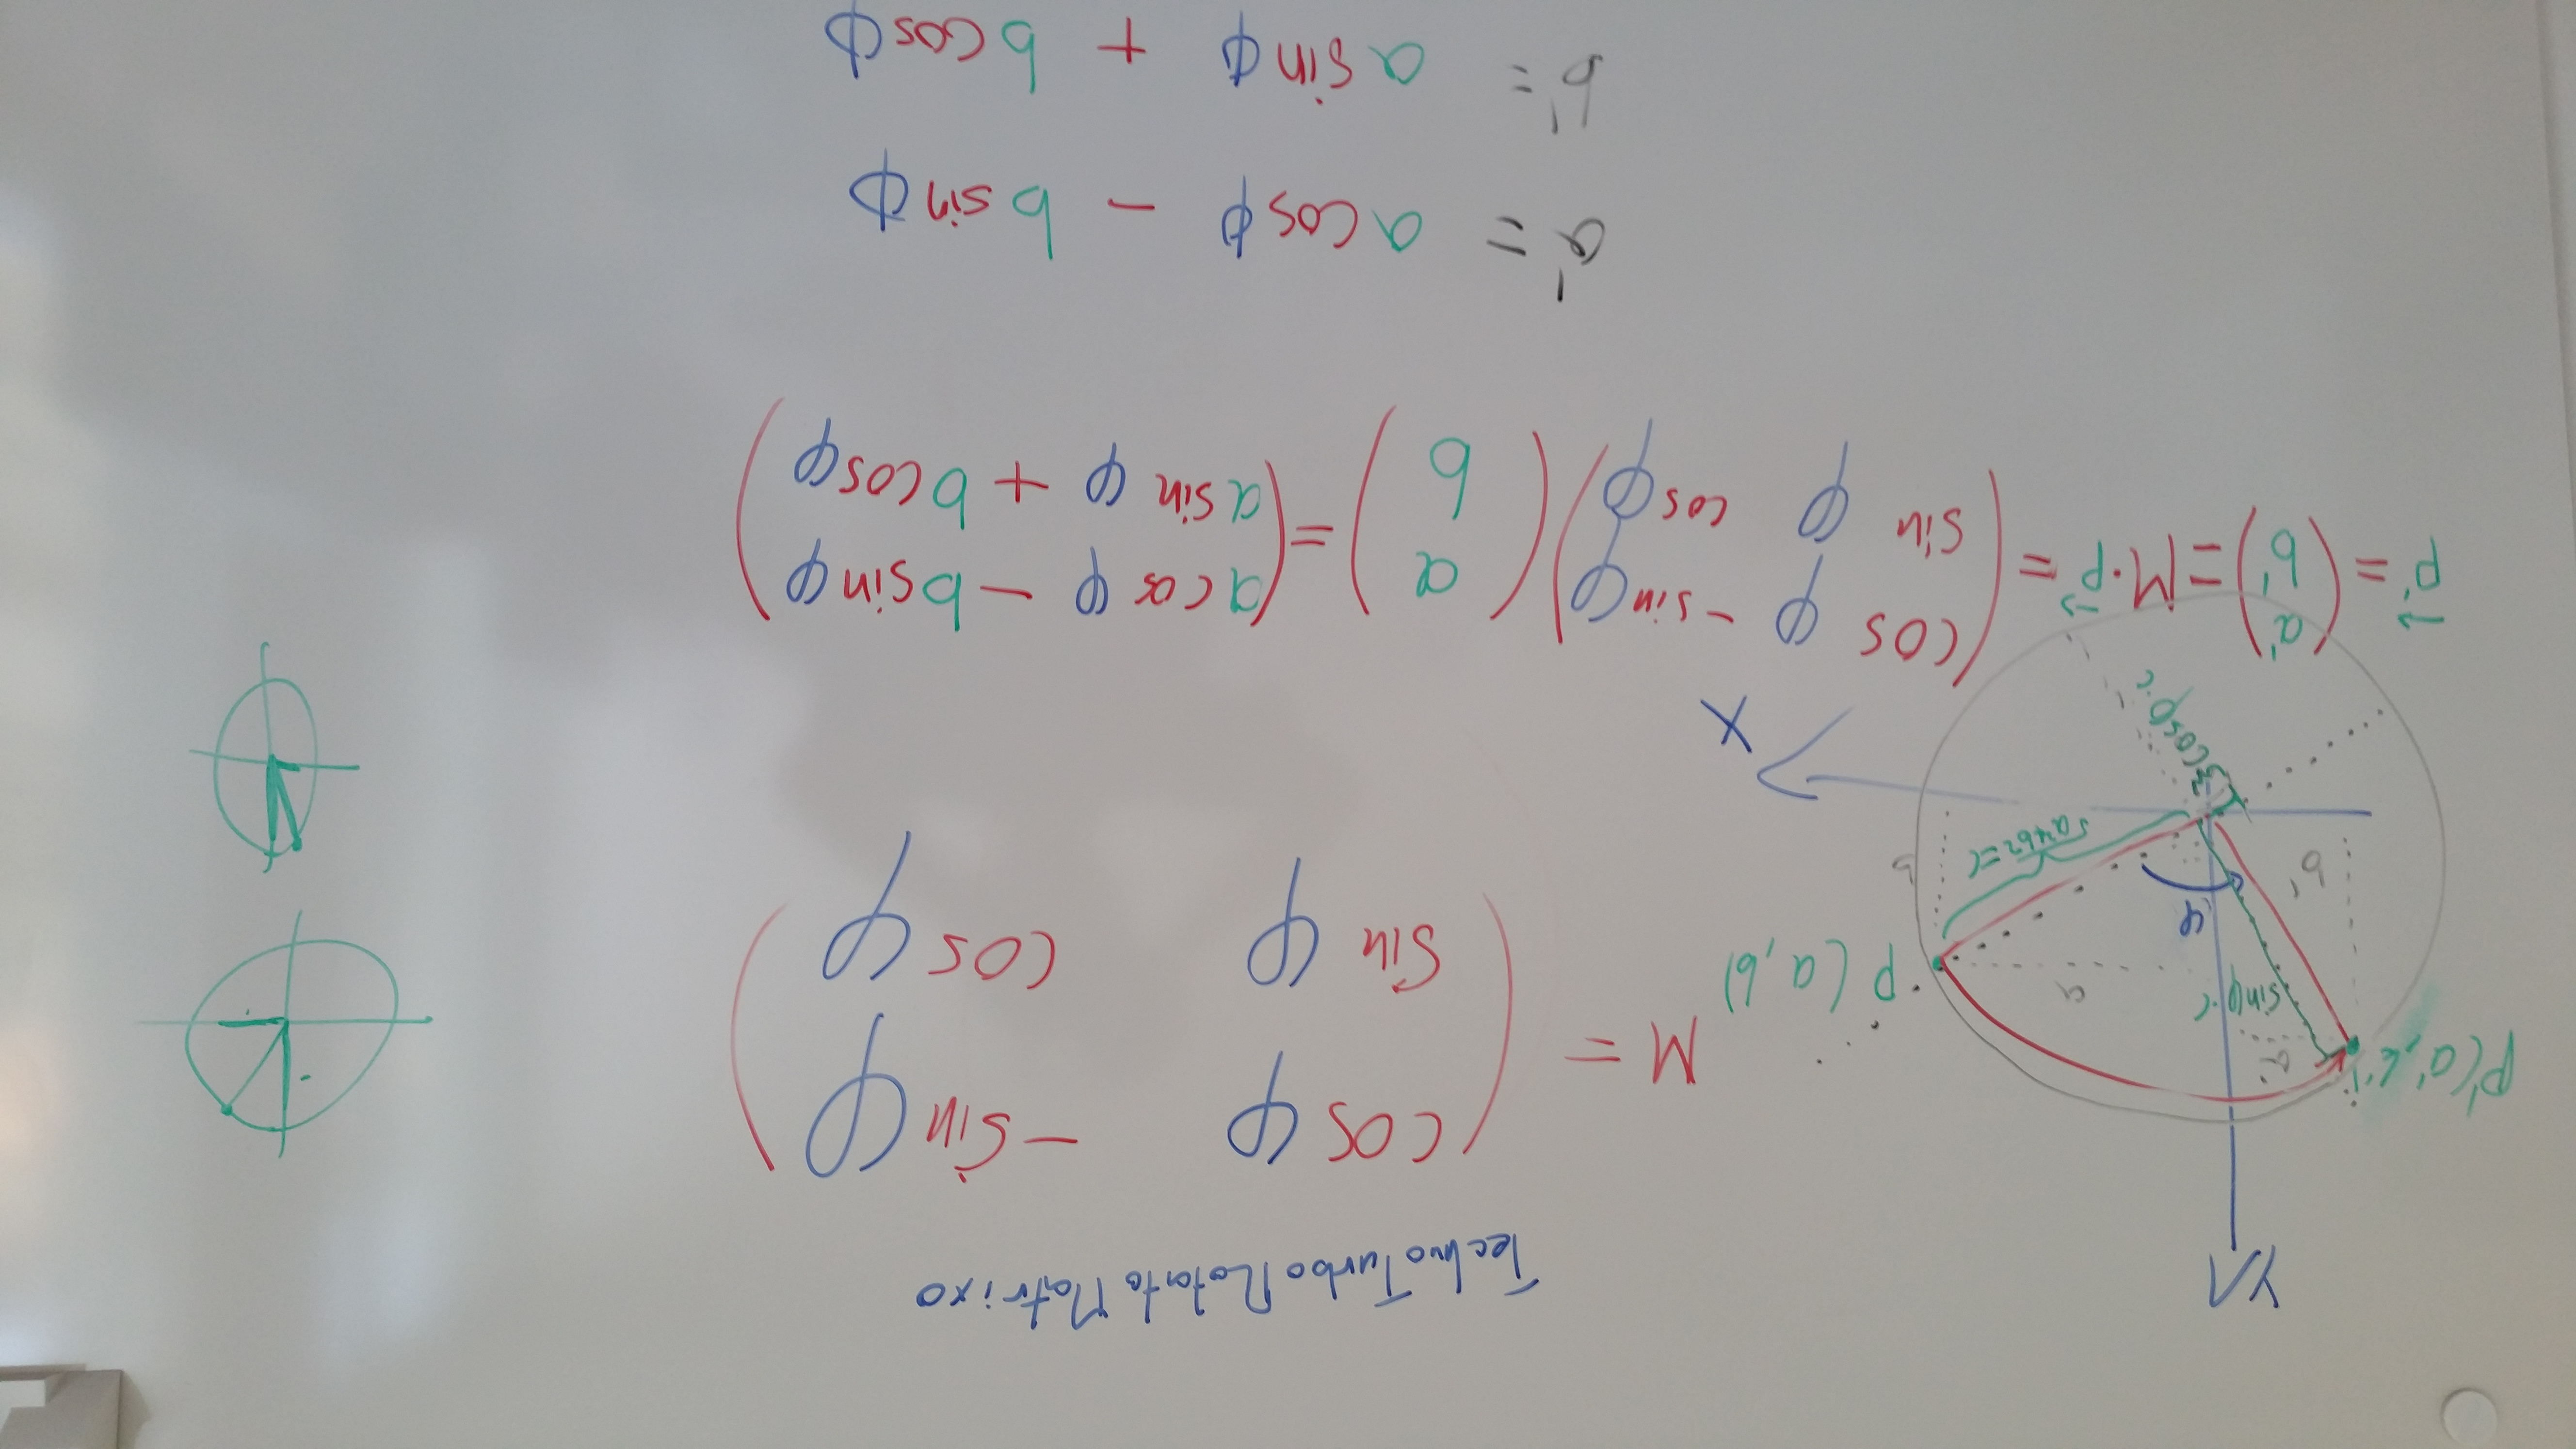 TechnoTurboRotatoMatrixo
Y
P'(a', b')
a'
sinφ·c
a
P(a,b)
φ
b'
√a²+b²=c
b
cosφ·c
X
M = ( cos φ -sin φ
sin φ cos φ )
p⃗' = ( a' b' ) = M·p⃗ = ( cos φ -sin φ sin φ cos φ ) ( a b ) = ( a cos φ - b sin φ a sin φ + b cos φ )
a' = a cos ϕ - b sin ϕ
b' = a sin ϕ + b cos ϕ